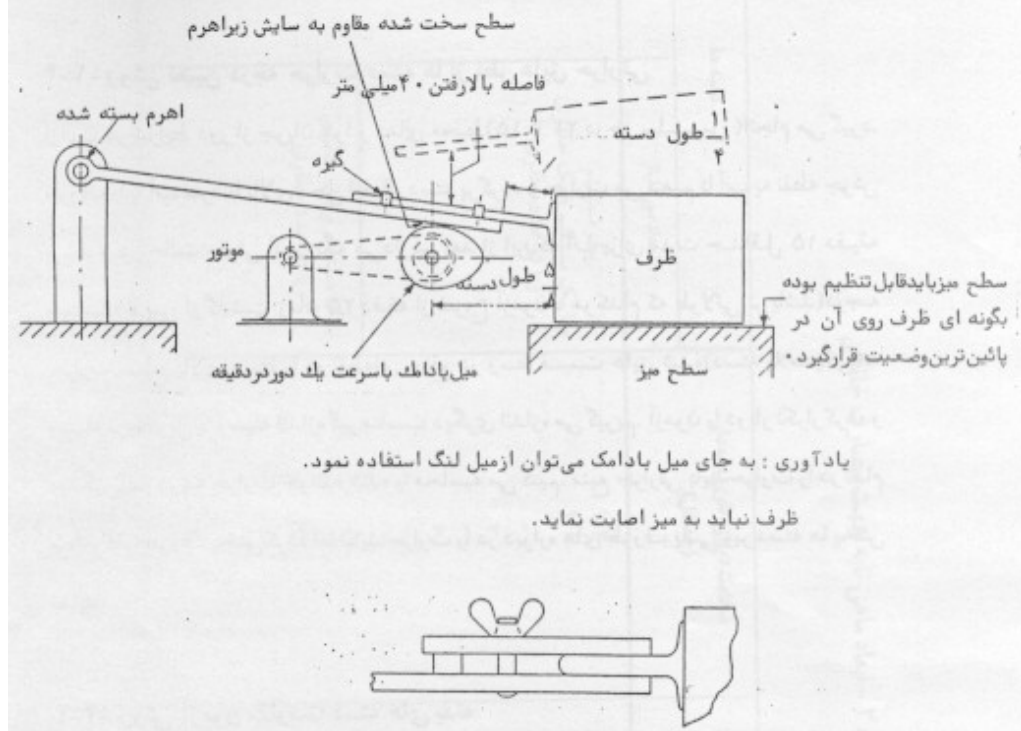 سطح سخت شده مقاوم به سایش زیراهرم
فاصله بالارفتن ۴۰میلی متر
اهرم بسته شده
۱/۴ طول دسته
گیره
موتور
ظرف
طول دسته ۵/۸
سطح میزبایدقابل تنظیم بوده
بگونه ای ظرف روی آن در
پائین‌ترین‌وضعیت قرارگیرد.
میل‌بادامك باسرعت یك دوردردقیقه
سطح میز
یادآوری : به جای میل بادامک می‌توان ازمیل لنگ استفاده نمود.
ظرف نباید به میز اصابت نماید.